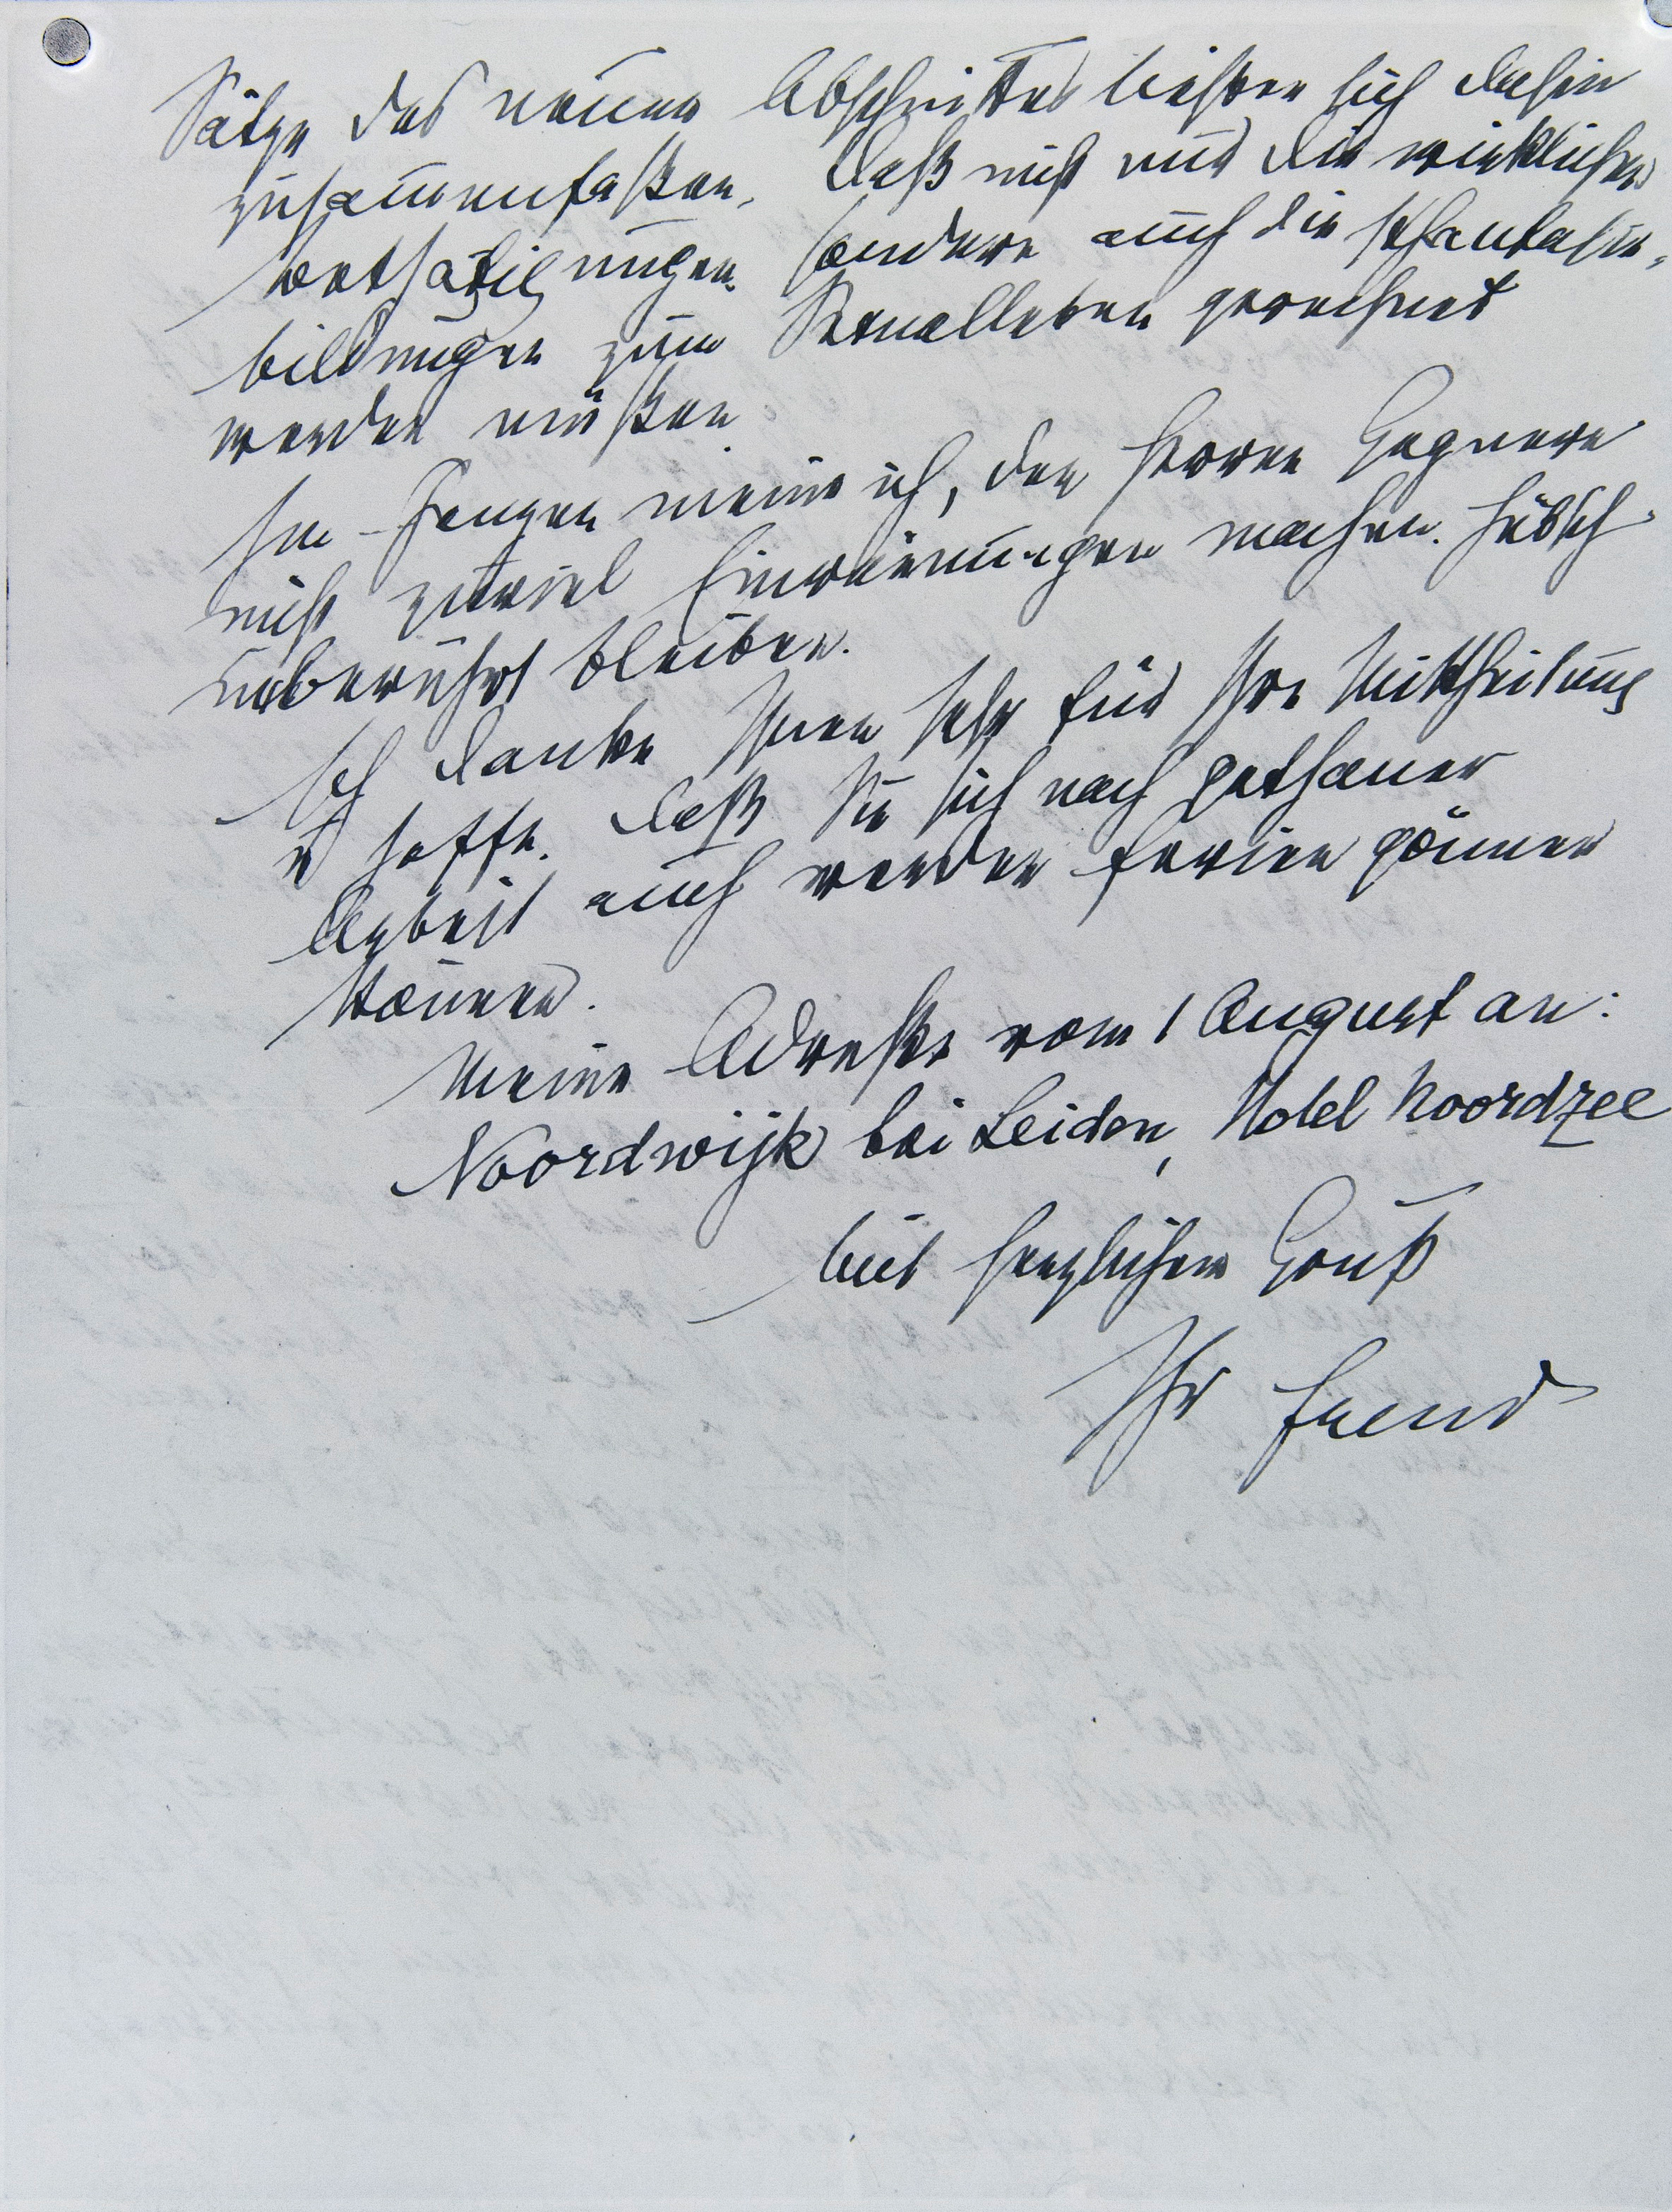 Sätze des neuen Abschnittes ließen sich dahin
zusammenfaßen, daß nicht nur die wirklichen
Bethätigungen, sondern auch die Phantasie-
bildungen zum Sexualleben gerechnet
werden müßen.
Im Ganzen meine ich, den Herren Gegnern
nicht zuviel Einräumungen machen. Hübsch
unberührt bleiben.
Ich danke Ihnen sehr für Ihre Mittheilung
u hoffe, daß Sie sich nach gethaner
Arbeit auch werden Ferien gönnen
können.
Meine Adreße vom 1 August an:
Noordwijk bei Leiden, Hotel Noordzee
Mit herzlichem Gruß
Ihr Freud